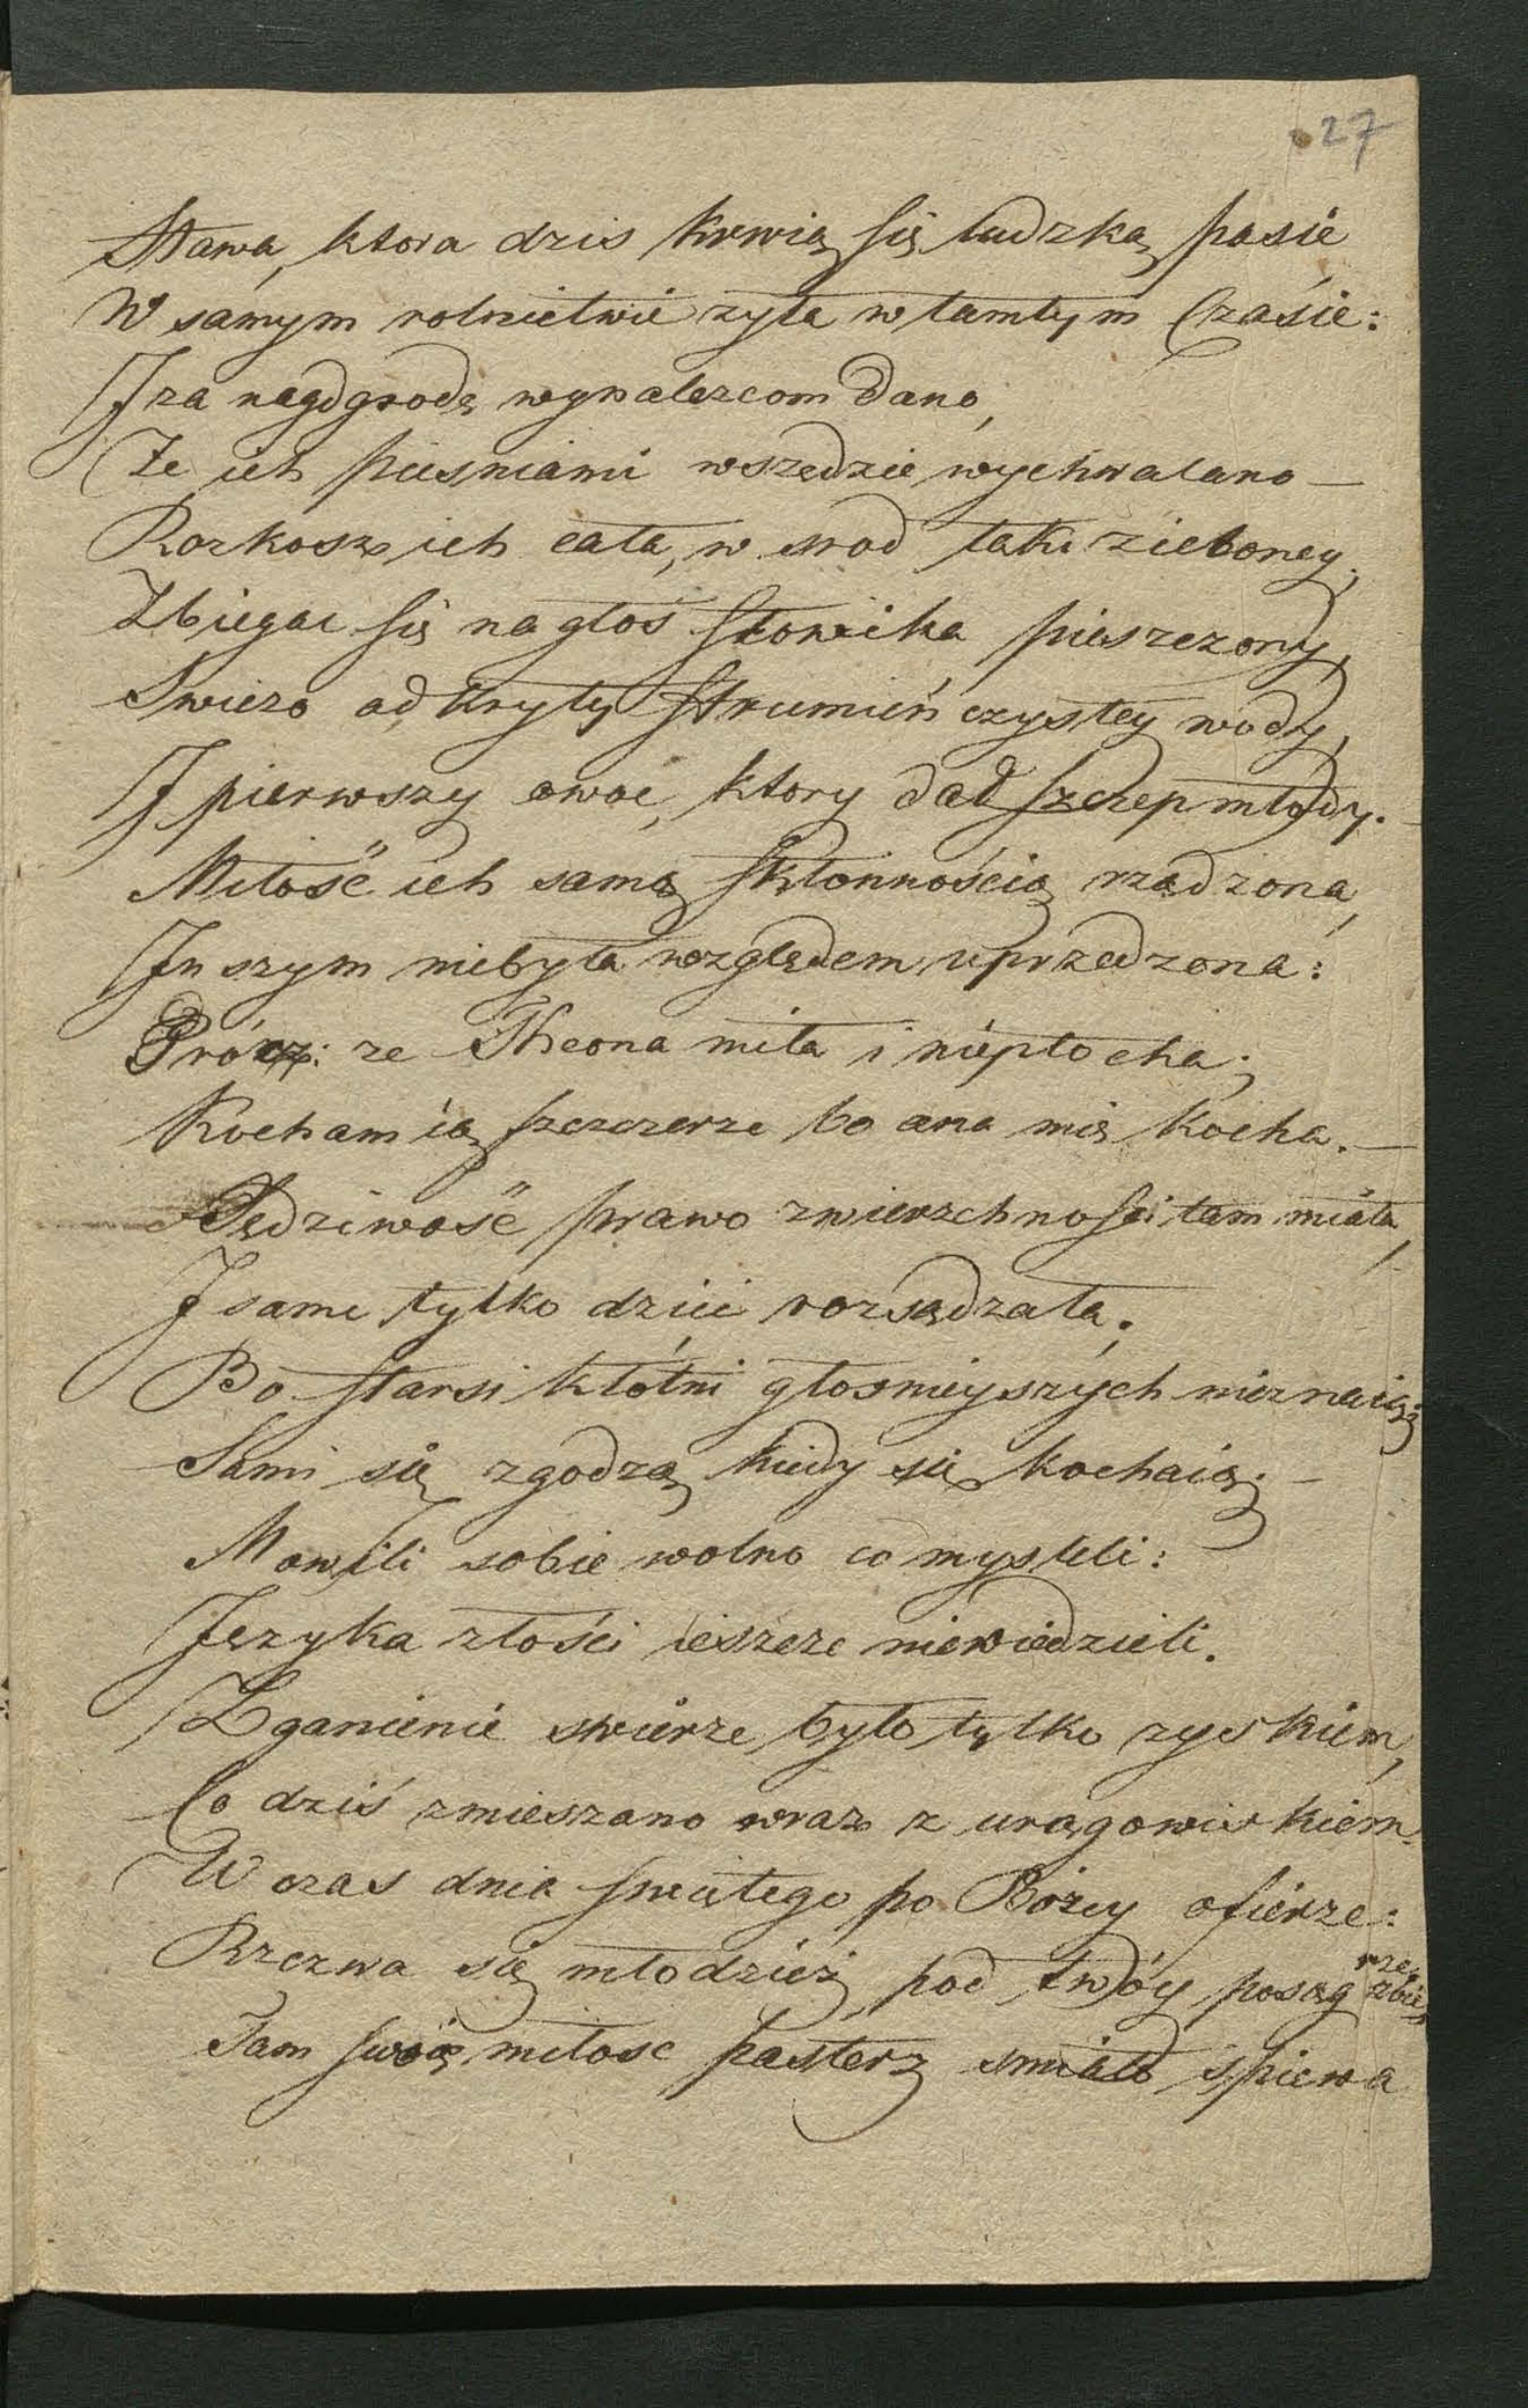 27
Sława, ktora dzis krwią się ludzką pasie
W samym rolnictwie zyła w tamtym Czasie:
I za nagdgrodę wynalezcom dano,
Ze ich piesniami wszędzie wychwalano —
Rozkosz ich cała, w srod łaki zieloney,
Zbiegac się na głos słowika pieszczony,
Swiezo odkryty strumień czystey wody,
I pierwszy owoc, ktory dał szczep młody.
Miłość ich samą skłonnością rządzona,
Inszym niebyła względem uprzedzona:
Prócz: ze Theona miła i niepłocha;
Kocham ią szczerze bo ona mię kocha. —
Sędziwość prawo zwierzchności tam miała,
I same tylko dzieci rozsądzała.
Bo starsi kłótni głosnieyszych nieznaią;
Sami się zgodzą kiedy się kochaią; —
Mowili sobie wolno co mysleli:
Języka złości ieszcze niewiedzieli.
Zganienie swierze było tylko zyskiem,
Co dziś zmieszano wraz z urągowiskiem.
W czas dnia swiętego po Bożey ofierze:
Rzezwa się młodzież pod twóy posąg zbierze,
Tam swoią miłosc pasterz smiało śpiewa